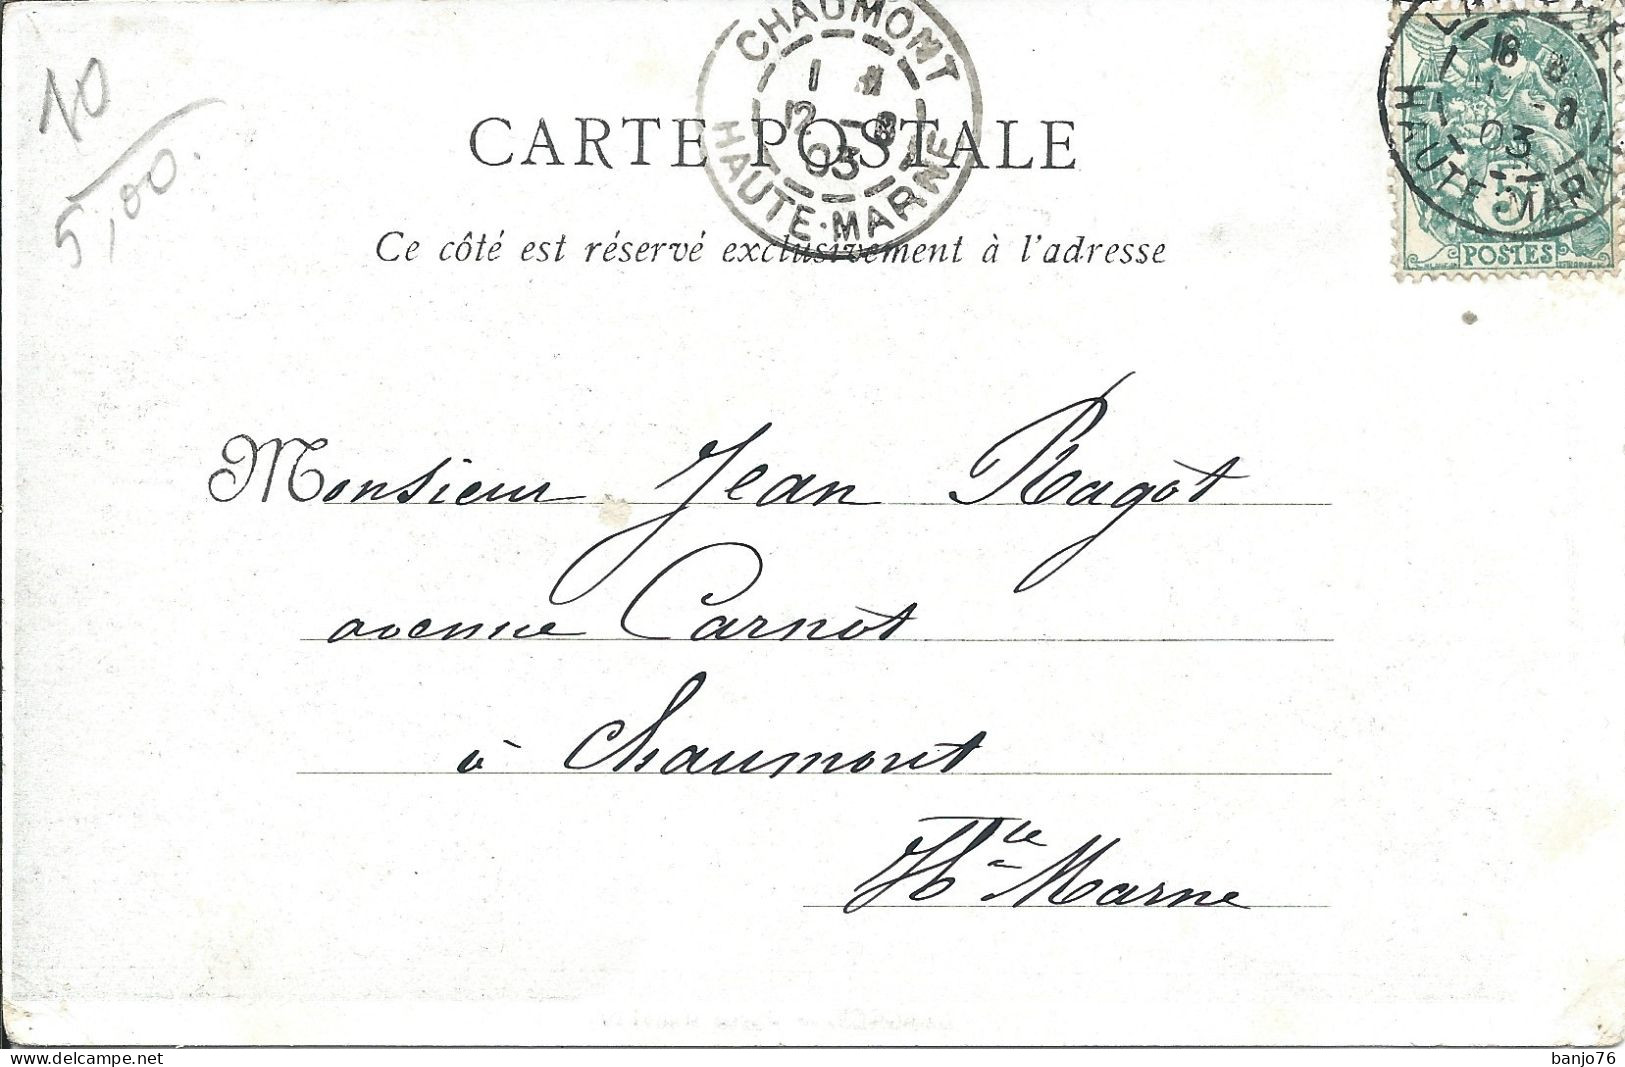 10
5,00.
CHAUMONT
1
12 -8
03
HAUTE·MARNE
18
-8
03
HAUTE-MARNE
5
POSTES
CARTE POSTALE
Ce côté est réservé exclusivement à l'adresse
Monsieur Jean Ragot
avenue Carnot
à Chaumont
Hte Marne
https://www.delcampe.net
banjo76